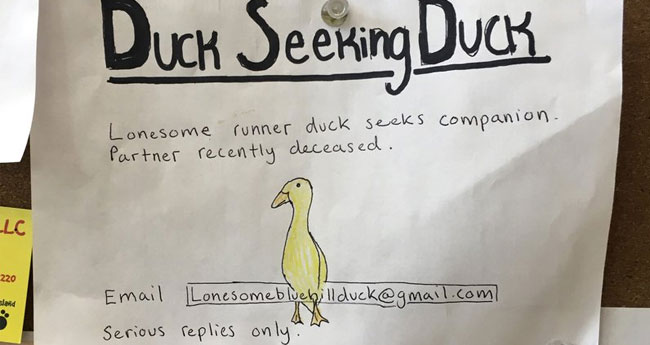 Duck Seeking Duck
Lonesome runner duck seeks companion.
Partner recently deceased.
LLC
220
Island
Email Lonesomebluehillduck@gmail.com
Serious replies only.